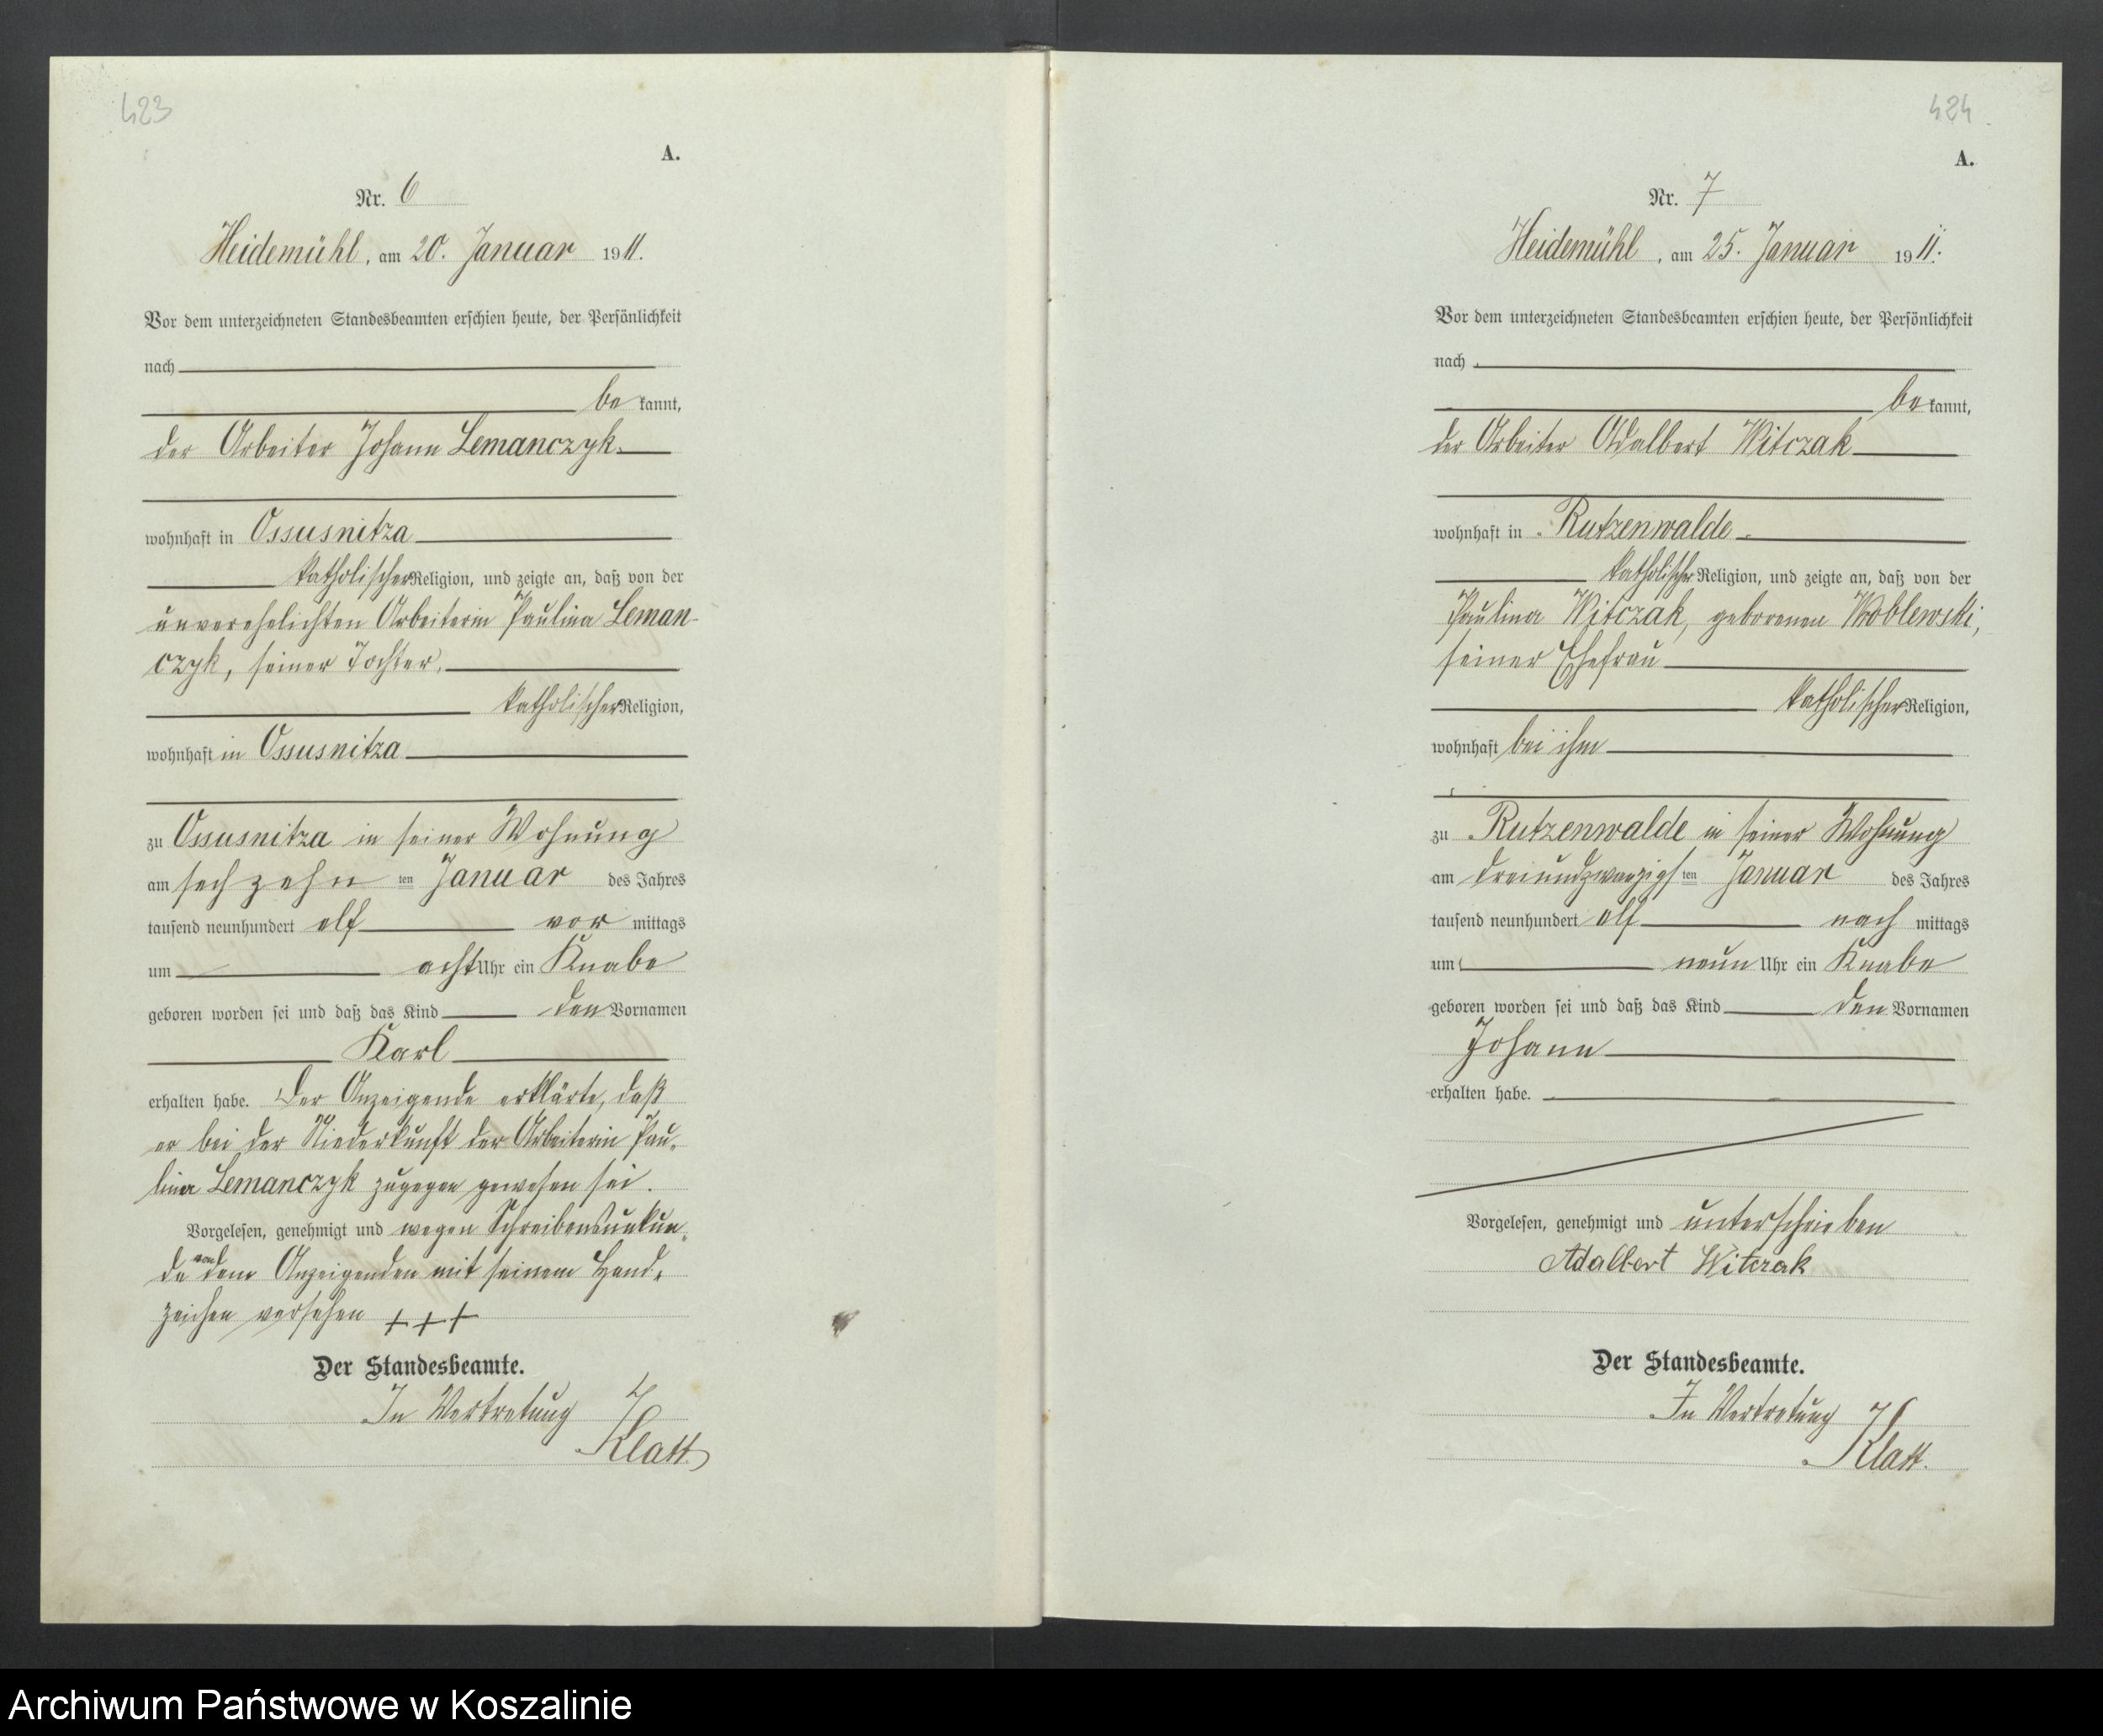 423
A.
Nr. 6
Heidemühl, am 20. Januar 1911.
Vor dem unterzeichneten Standesbeamten erschien heute, der Persönlichkeit
nach
be kannt,
der Arbeiter Johann Lemanczyk.
wohnhaft in Ossusnitza
katholischer Religion, und zeigte an, daß von der
unverehelichten Arbeiterin Paulina Leman-
czyk, seiner Tochter,
katholischer Religion,
wohnhaft in Ossusnitza
zu Ossusnitza in seiner Wohnung
am sechzehn ten Januar des Jahres
tausend neunhundert elf vor mittags
um acht Uhr ein Knabe
geboren worden sei und daß das Kind den Vornamen
Karl
erhalten habe. Der Anzeigende erklärte, daß
er bei der Niederkunft der Arbeiterin Pau-
lina Lemanczyk zugegen gewesen sei.
Vorgelesen, genehmigt und wegen Schreibensunkun-
de von dem Anzeigenden mit seinem Hand-
zeichen versehen +++
Der Standesbeamte.
In Vertretung
Klatt
424
A.
Nr. 7
Heidemühl, am 25. Januar 1911.
Vor dem unterzeichneten Standesbeamten erschien heute, der Persönlichkeit
nach
be kannt,
der Arbeiter Adalbert Witczak
wohnhaft in Rutzenwalde
katholischer Religion, und zeigte an, daß von der
Paulina Witczak, geborenen Wroblewski,
seiner Ehefrau
katholischer Religion,
wohnhaft bei ihm
zu Rutzenwalde in seiner Wohnung
am dreiundzwanzigsten Januar des Jahres
tausend neunhundert elf nach mittags
um neun Uhr ein Knabe
geboren worden sei und daß das Kind den Vornamen
Johann
erhalten habe.
Vorgelesen, genehmigt und unterschrieben
Adalbert Witczak
Der Standesbeamte.
In Vertretung
Klatt.
Archiwum Państwowe w Koszalinie